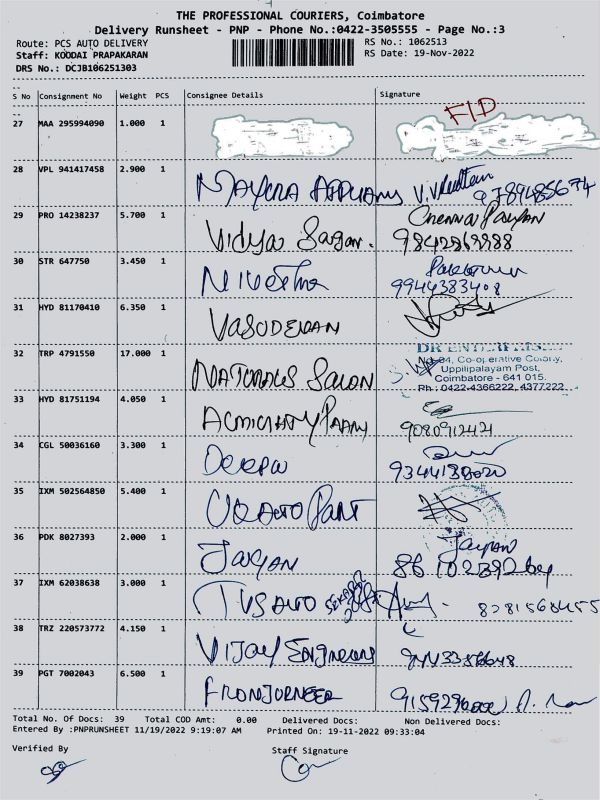 THE PROFESSIONAL COURIERS, Coimbatore
Delivery Runsheet - PNP - Phone No.:0422-3505555 - Page No.:3
Route: PCS AUTO DELIVERY RS No.: 1062513
Staff: KOODAI PRAPAKARAN RS Date: 19-Nov-2022
DRS No.: DCJB106251303
S No Consignment No Weight PCS Consignee Details Signature
27 MAA 295994090 1.000 1 FID
28 VPL 941417458 2.900 1 MAYURA
29 PRO 14238237 5.700 1 Vidya Sagan. 9842869888
30 STR 647750 3.450 1 9944383408
31 HYD 81170410 6.350 1 VASUDEVAN
32 TRP 4791550 17.000 1 NATURALS SALON
No 94, Co-operative Colony,
Uppilipalayam Post,
Coimbatore - 641 015.
Ph : 0422-4366222, 4377222
33 HYD 81751194 4.050 1 9080912421
34 CGL 50036160 3.300 1 Deepa 9344138020
35 IXM 502564850 5.400 1 AUTO PART
36 PDK 8027393 2.000 1 Jayan Jayan
37 IXM 62038638 3.000 1 TVS AUTO 8281568455
38 TRZ 220573772 4.150 1 VIJAY Engineers
39 PGT 7002043 6.500 1
Total No. Of Docs: 39 Total COD Amt: 0.00 Delivered Docs: Non Delivered Docs:
Entered By :PNPRUNSHEET 11/19/2022 9:19:07 AM Printed On: 19-11-2022 09:33:04
Verified By Staff Signature